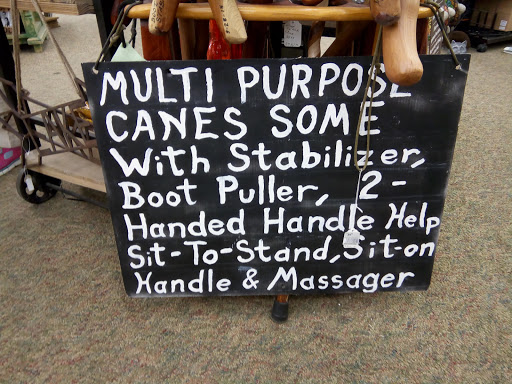 MULTI PURPOSE
CANES SOME
With Stabilizer,
Boot Puller, 2-
Handed Handle Help
Sit-To-Stand, Sit-on
Handle & Massager